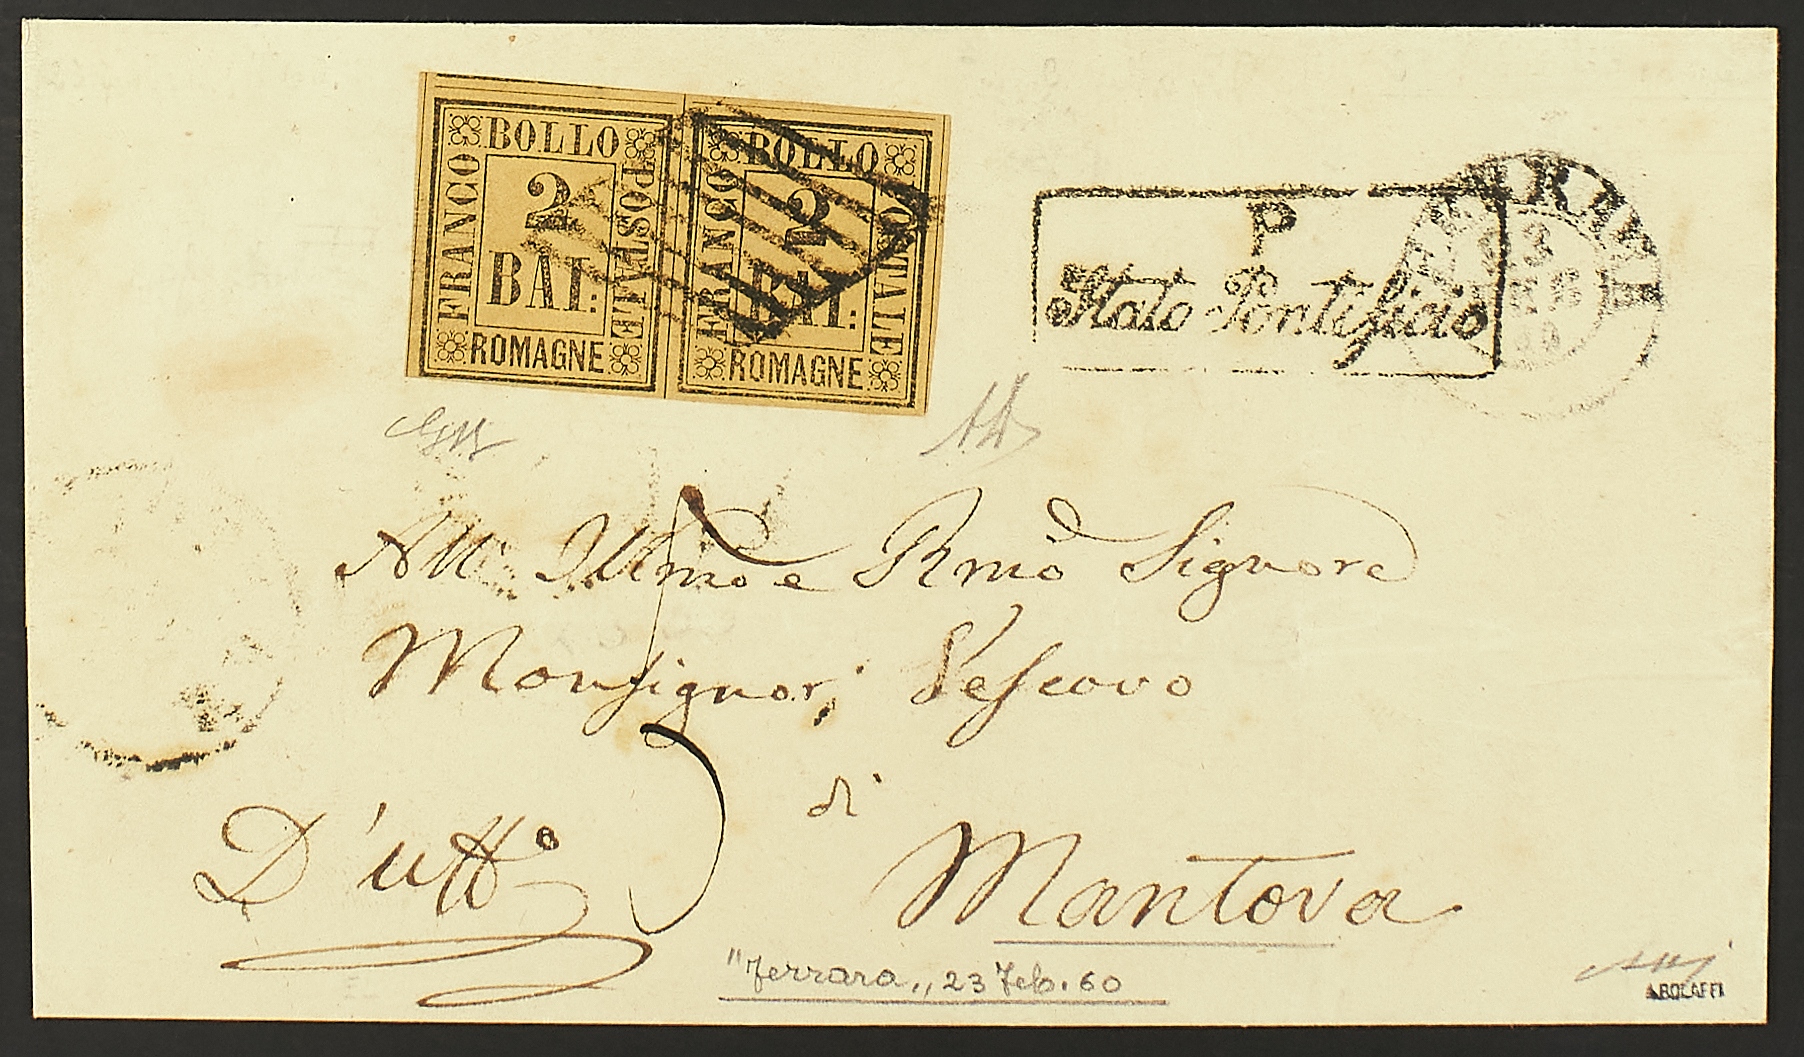 BOLLO
FRANCO
POSTALE
2
BAI:
ROMAGNE
BOLLO
FRANCO
POSTALE
2
BAI:
ROMAGNE
P
Stato Pontificio
23
All' Illmo e Rmo Signore
Monsignor Vescovo
di
Mantova
D'uffo
"Ferrara" 23 Feb. 60
A BOLAFFI